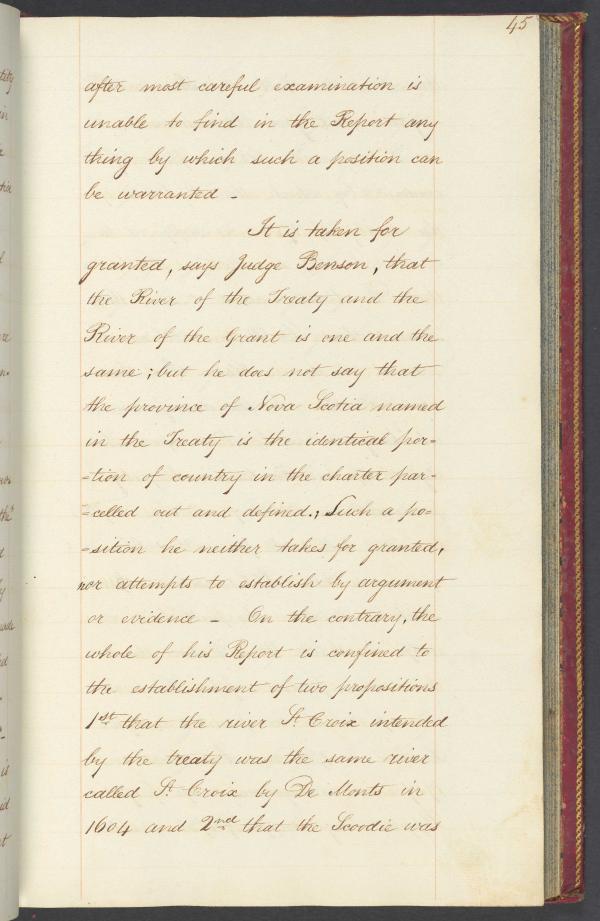 45
after most careful examination is
unable to find in the Report any
thing by which such a position can
be warranted -
It is taken for
granted, says Judge Benson, that
the River of the Treaty and the
River of the Grant is one and the
same; but he does not say that
the province of Nova Scotia named
in the Treaty is the identical por=
=tion of country in the charter par-
=celled out and defined.; Such a po=
=sition he neither takes for granted,
nor attempts to establish by argument
or evidence - On the contrary, the
whole of his Report is confined to
the establishment of two propositions
1st that the river St. Croix intended
by the treaty was the same river
called St. Croix by De Monts in
1604 and 2nd that the Scoodic was